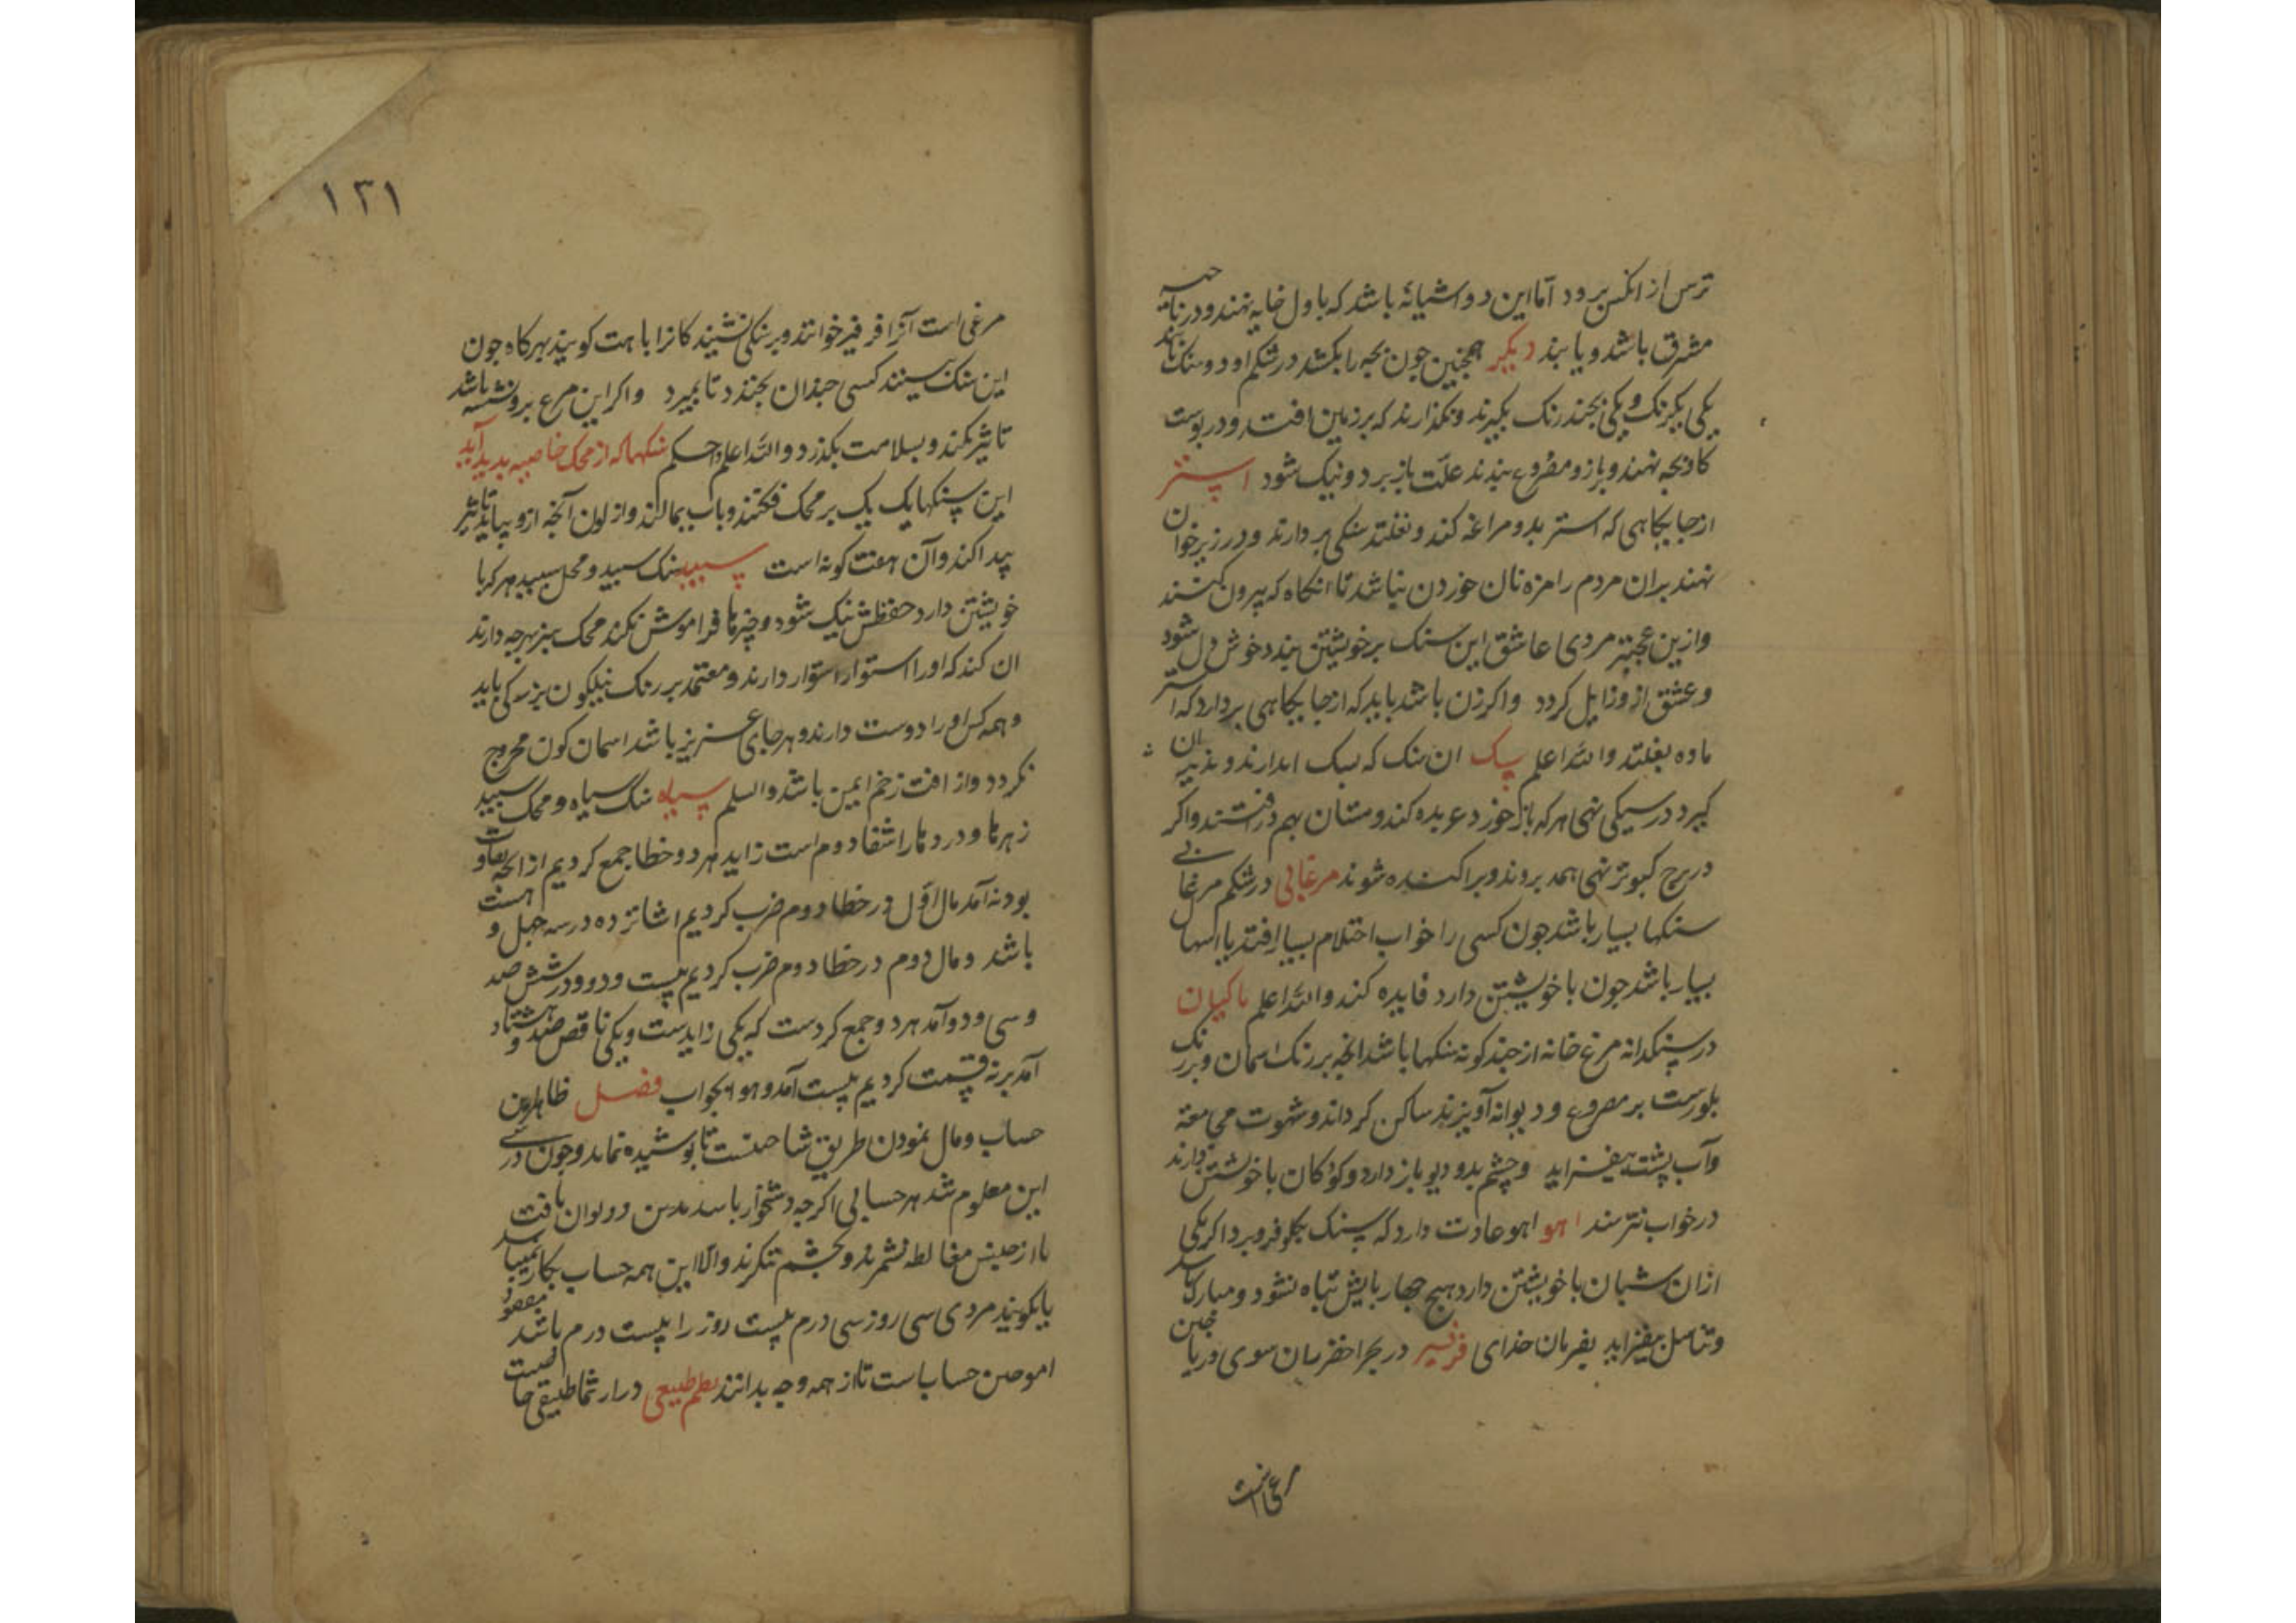 ترس از انکس برود اما این در اشیانهٔ باشد که باول خایه نهند و در ناحیه
مشرق باشد و یابند دیکر همچنین جون بجه را بکشد در شکم او دو سنک یابند
یکی یکرنک و یکی بجند رنک بکیرند و نکذارند که بر زمین افتد و در بوست
کاوبجه نهند و بازو مصروع بندند علّت بازبرد و نیک شود استر
از جایکاهی که استر بدو مراغه کند و بغلتد سنکی بردارند و در زیر خوان
نهند بران مردم را مزه نان خوردن نباشد تا انکاه که بیرون کنند
وازین عجبتر مردی عاشق این سنک بر خویشتن بندد خوش دل شود
و عشق ازو زایل کردد واکر زن باشد باید که از جایکاهی بردارد که استر
ماده بغلتد والله اعلم سک ان سنک که سک اندازند و بدندان
کیرد در سیکی نهی هرکه باز خورد عربده کند و مستان بهم درافتند واکر
در برج کبوتر نهی همه بروند و براکنده شوند مرغابی در شکم مرغابی
سنکها بسیار باشد جون کسی را خواب احتلام بسیار افتد یا اسهال
بسیار باشد جون با خویشتن دارد فایده کند والله اعلم ماکیان
در سنکدانه مرغ خانه از جند کونه سنکها باشد انچه بر رنک اسمان و بر رنک
بلورست بر مصروع و دیوانه آویزند ساکن کرداند و شهوت مجامعة
وآب پشت بیفزاید و چشم بد و دیو باز دارد و کودکان با خویشتن دارند
در خواب نترسند اهو اهو عادت دارد که سنک بکلو فرو برد اکر یکی
ازان شبان با خویشتن دارد هیج جهاربایش تباه نشود و مبارک باشد
و تناسل بیفزاید بفرمان خدای فرفیر در بحر اخضر میان سوی دریا جنین
مرغی است
۱۳۱
مرغی است آنرا فرفیر خوانند و بر سنکی نشیند کانرا باهت کویند هرکاه جون
این سنک بینند کسی جندان بخندد تا بمیرد واکر این مرغ برو نشسته باشد
تاثیر نکند و بسلامت بکذرد والله اعلم و احکم سنکها که از محک خاصیه بدید آید
این سنکها یک یک بر محک فکنند و باب بمالند واز لون آنچه ازو بیاید تاثیر
پیدا کند و آن هفت کونه است سپید سنک سپید و محک سپید هرکه با
خویشتن دارد حفظش نیک شود و چیزها فراموش نکند محک سبز هرجه دارند
ان کند که او را استوار استوار دارند و معتمد بر رنک نیلکون بزرکی یابد
و همه کس او را دوست دارند و هر جای عزیز باشد اسمان کون مجروح
نکردد و از افت زخم ایمن باشد والسلم سیاه سنک سیاه و محک سپید
زهرها و دردها را شفا دوم است زاید هر دو خطا جمع کردیم از انچه تفاوت
بود نه آمد مال اوّل در خطا دوم ضرب کردیم شانزده در سه جهل و هست
باشد و مال دوم در خطا دوم ضرب کردیم بیست و دو در شش صد
و سی و دو آمد هر دو جمع کردست که یکی زایدست و یکی ناقص صد و هشتاد
آمد بر نه قسمت کردیم بیست آمد و هو الجواب فصل ظاهر این
حساب و مال نمودن طریق شناختنست تا بوشیده نماند و جون درستی
این معلوم شد هر حسابی اکرجه دشخوار باشد بدین دو لوان یافت
تا از جنس مغالطه نشمرند و بچشم ننکرند والا این همه حساب بکار نمیباید
یا بکویند مردی سی روز سی درم بیست روز را بیست درم باشد مقصود
اموختن حسابست تا از همه وجه بدانند علم طبیعی در ارثماطیقی خاصیت